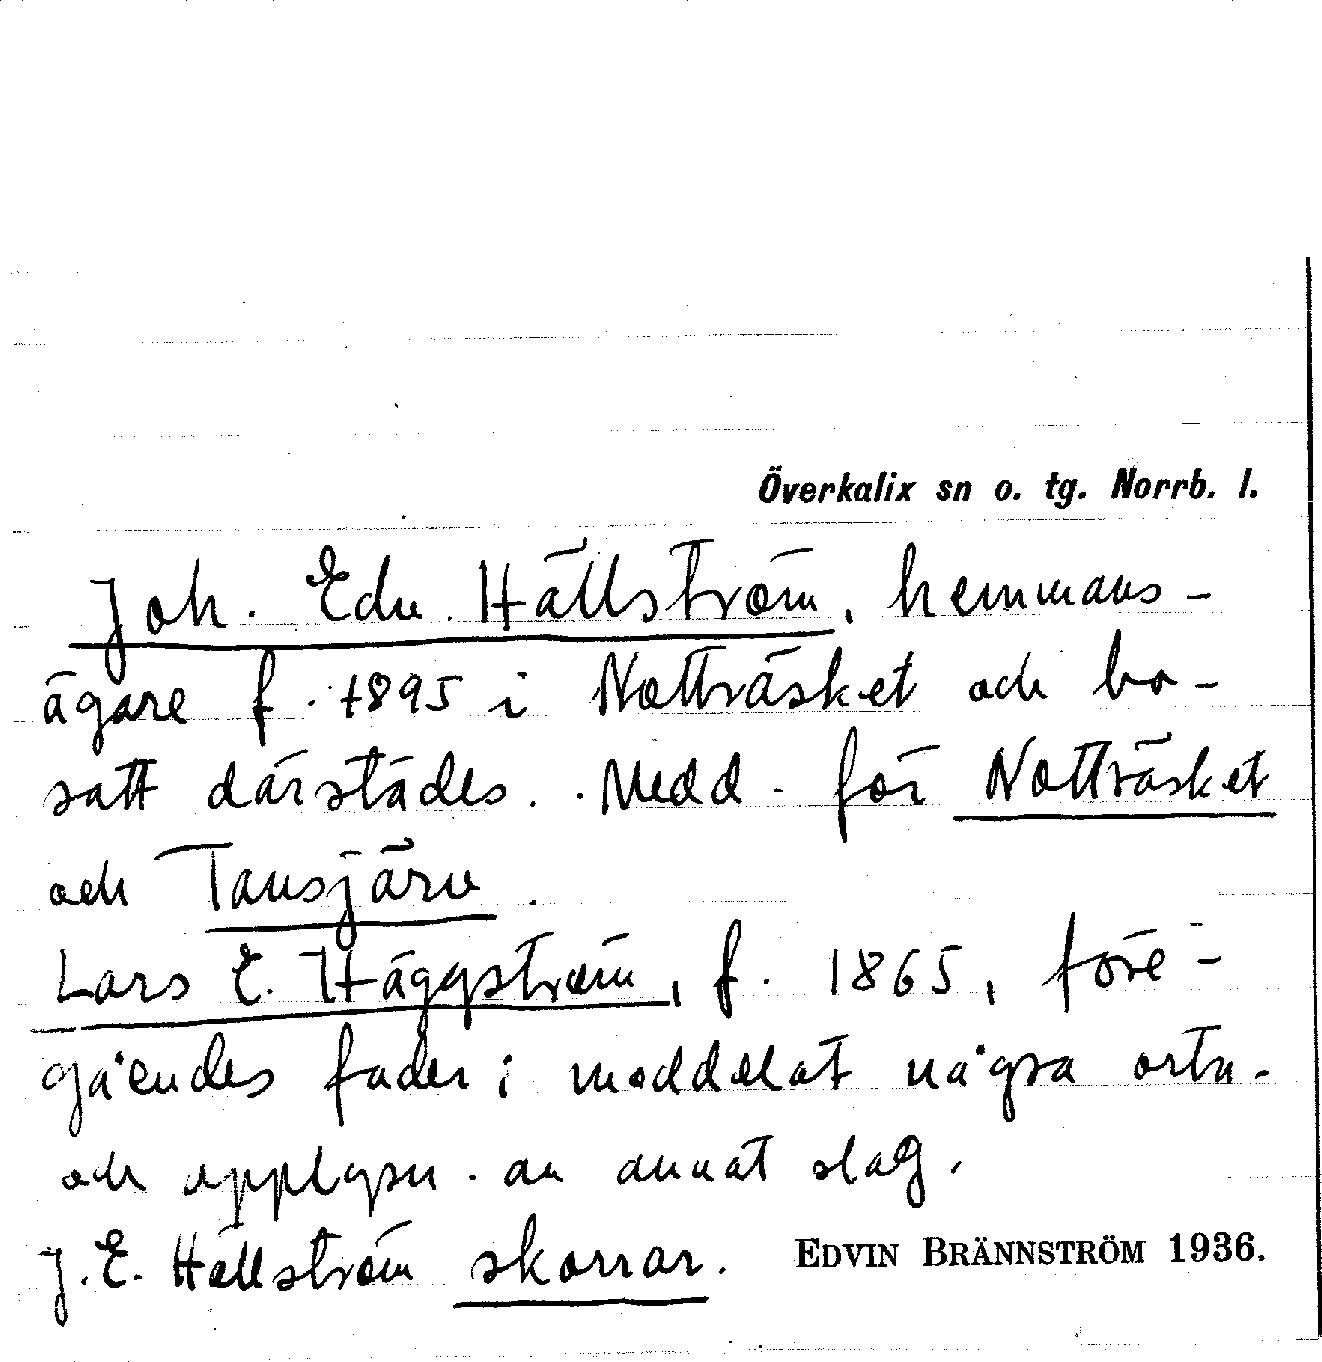 Överkalix sn o. tg. Norrb. l.
Joh. Edv. Hällström, hemmans-
ägare f. 1895 i Nattträsket och bo-
satt därstädes. Medd. för Nattträsket
och Tansjärv.
Lars E. Häggström, f. 1865, före-
gåendes fader; meddelat några ortn.
och upplysn. av annat slag.
J. E. Hällström skorrar.
EDVIN BRÄNNSTRÖM 1936.